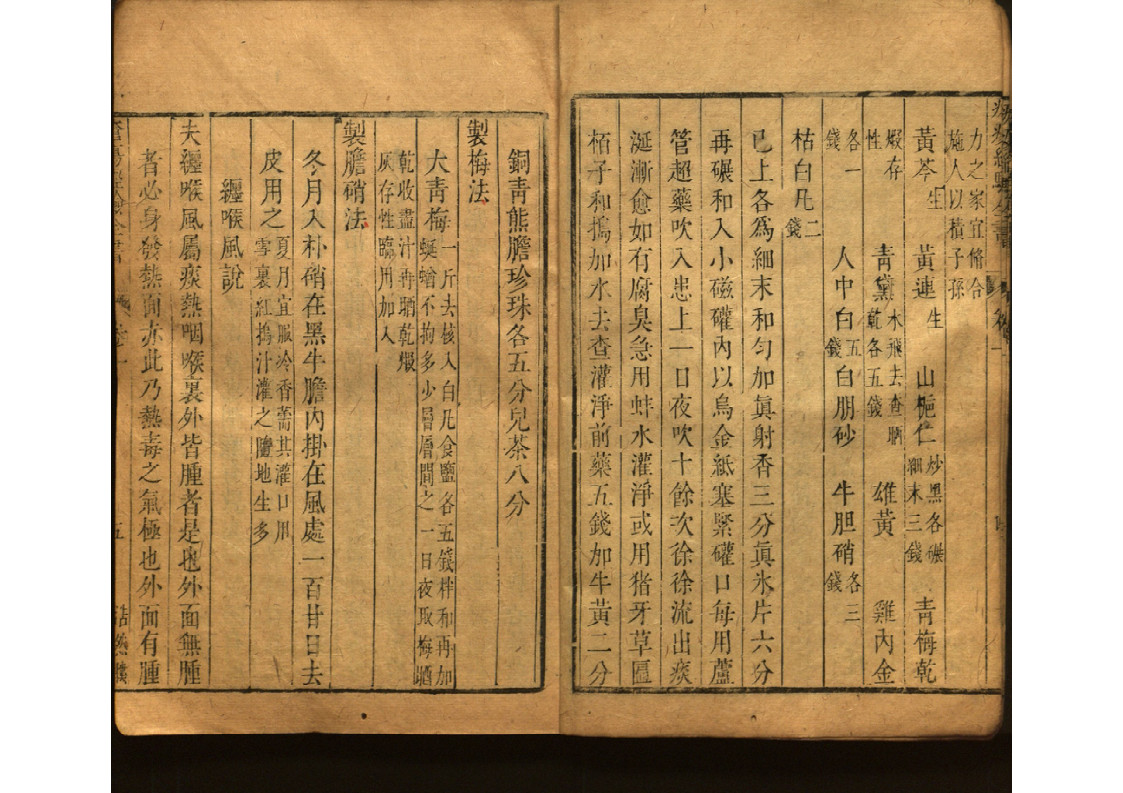 力之家宜俻合
施人以積子孫
黃芩生 黃連生 山梔仁炒黑各碾細末三錢 青梅乾
煅存性 青黛水飛去查晒乾各五錢 雄黃 雞內金
各一錢 人中白五錢 白朋砂 牛胆硝各三錢
枯白凡二錢
已上各爲細末和匀加眞射香三分眞氷片六分
再碾和入小磁礶內以烏金紙塞緊礶口每用蘆
管超藥吹入患上一日夜吹十餘次徐徐流出痰
涎漸愈如有腐臭急用蚌水灌淨或用猪牙草匾
栢子和搗加水去查灌淨前藥五錢加牛黃二分
銅青熊膽珍珠各五分兒茶八分
製梅法
大青梅一斤去核入白凡食鹽各五錢拌和再加蜒蝣不拘多少層層間之一日夜取梅晒
乾收盡汁再晒乾煅灰存性臨用加入
製膽硝法
冬月入朴硝在黑牛膽內掛在風處一百廿日去
皮用之夏月宜服冷香薷其灌口用雪裏紅搗汁灌之鹽地生多
纏喉風說
夫纏喉風屬痰熱咽喉裏外皆腫者是也外面無腫
者必身發熱面赤此乃熱毒之氣極也外面有腫
五